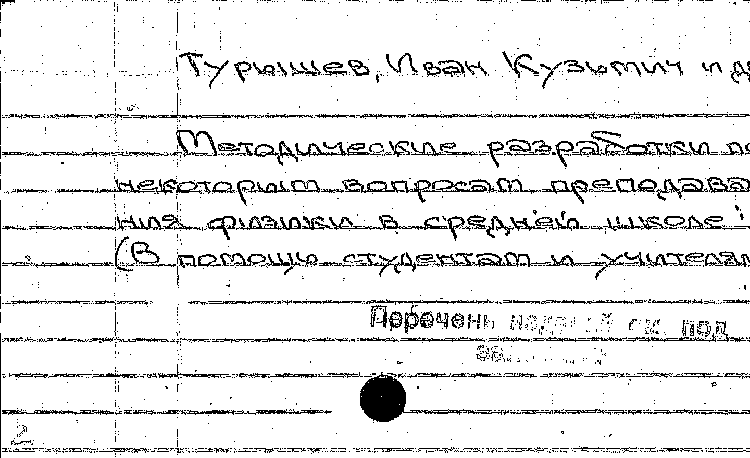 Турышев, Иван Кузьмич и др
Методические разработки по
некоторым вопросам преподава
ния физики в средней школе:
(В помощь студентам и учителям
Перечень изданий см. под
2